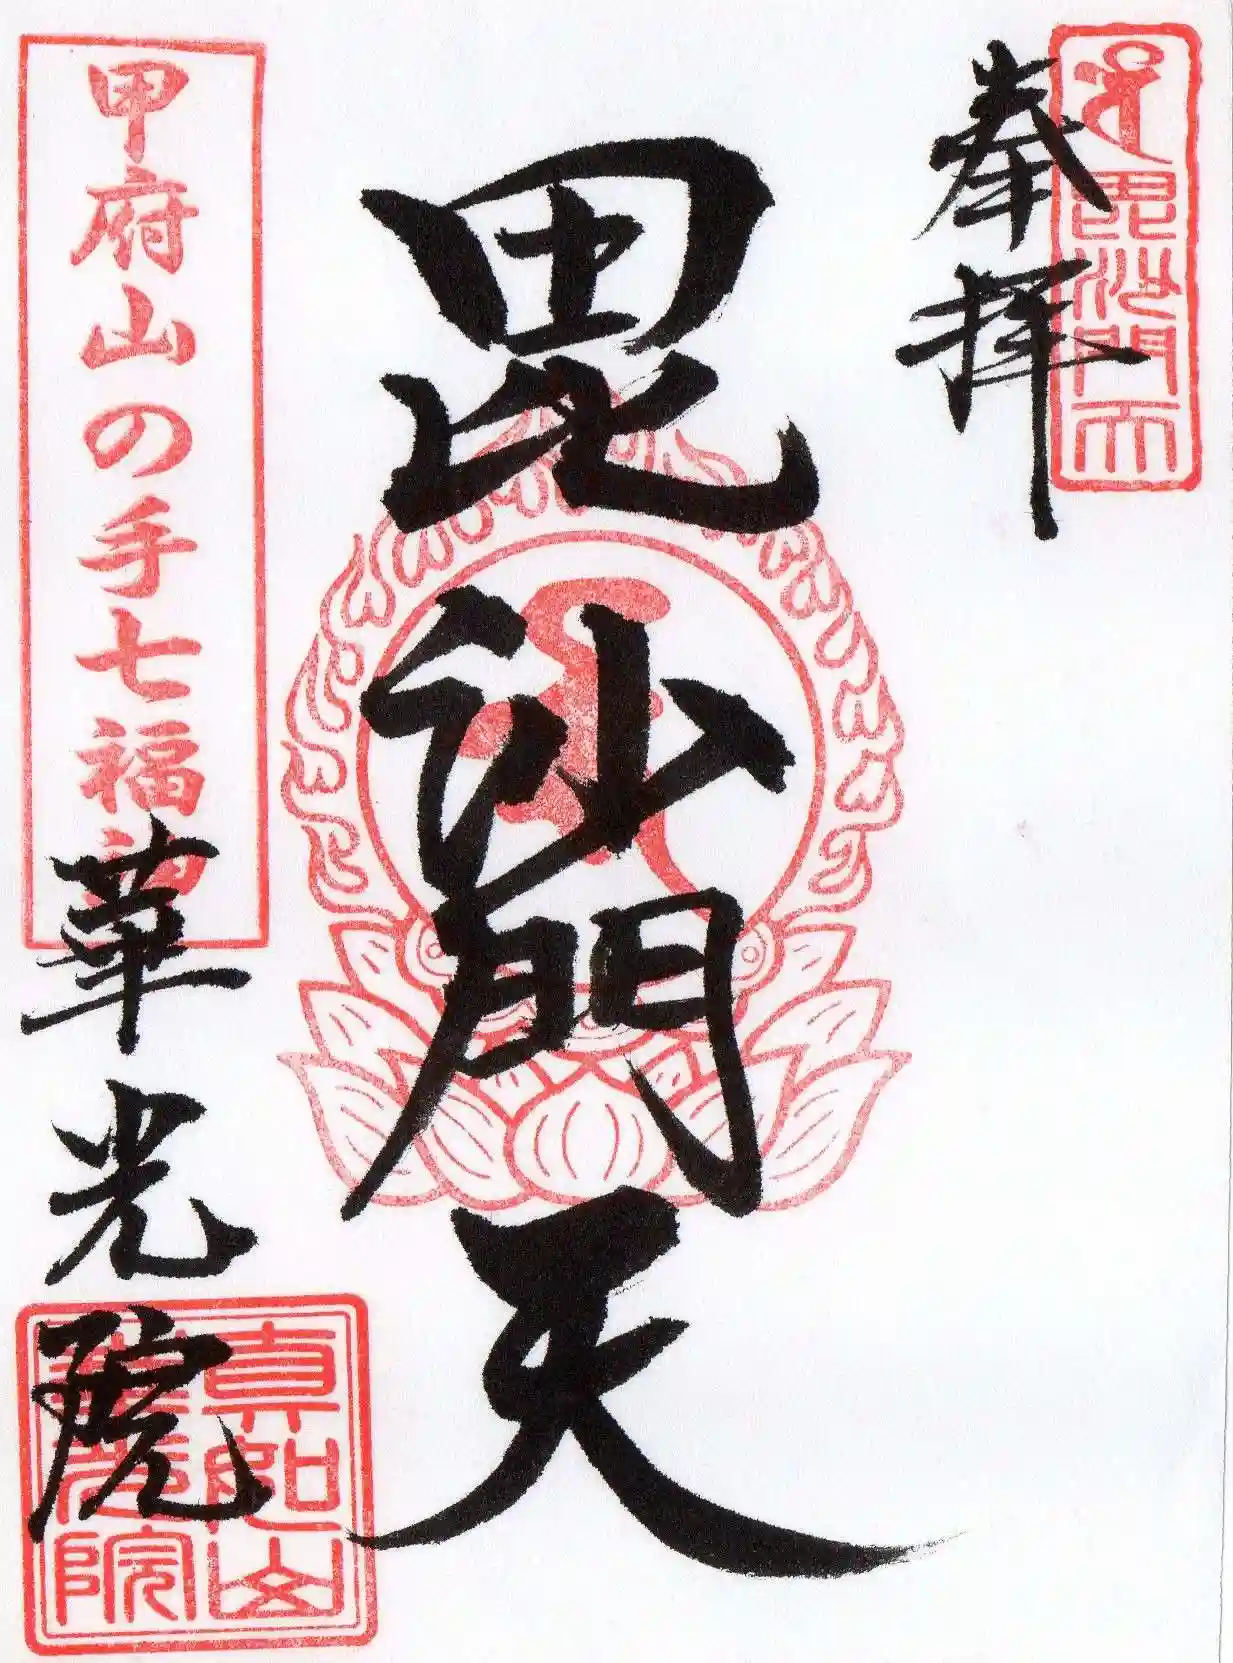 奉拝
毘沙門天
毘沙門天
甲府山の手七福神
華光院
華光院